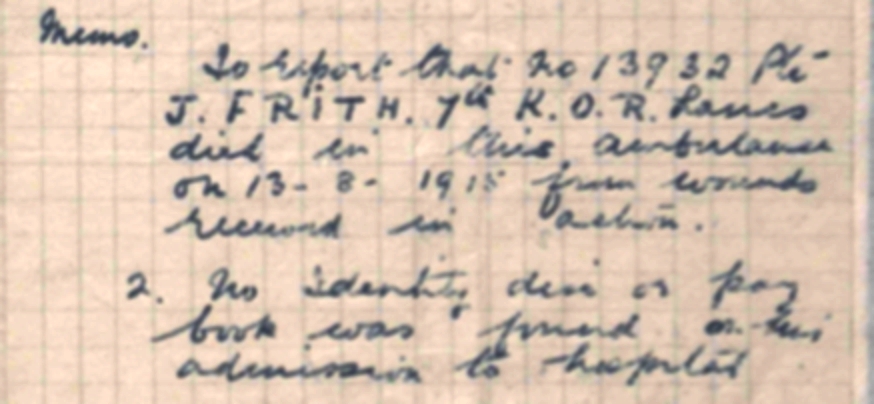 Memo.
To report that No 13932 Pte
J. FRITH. 7th K.O.R. Lancs
died in this ambulance
on 13-8-1915 from wounds
received in action.
2. No identity disc or pay
book was found on his
admission to hospital